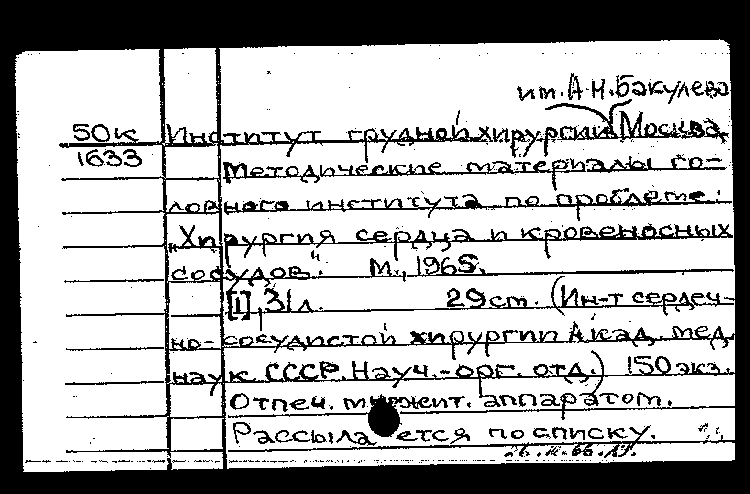 им. А.Н. Бакулева
50к Институт грудной хирургии Москва.
1633
Методические материалы го-
ловного института по проблеме:
„Хирургия сердца и кровеносных
сосудов". М., 1965.
[1], 31 л. 29 см. (Ин-т сердеч-
но-сосудистой хирургии Акад. мед.
наук СССР. Науч.-орг. отд.) 150 экз.
Отпеч. множит. аппаратом.
Рассылается по списку.